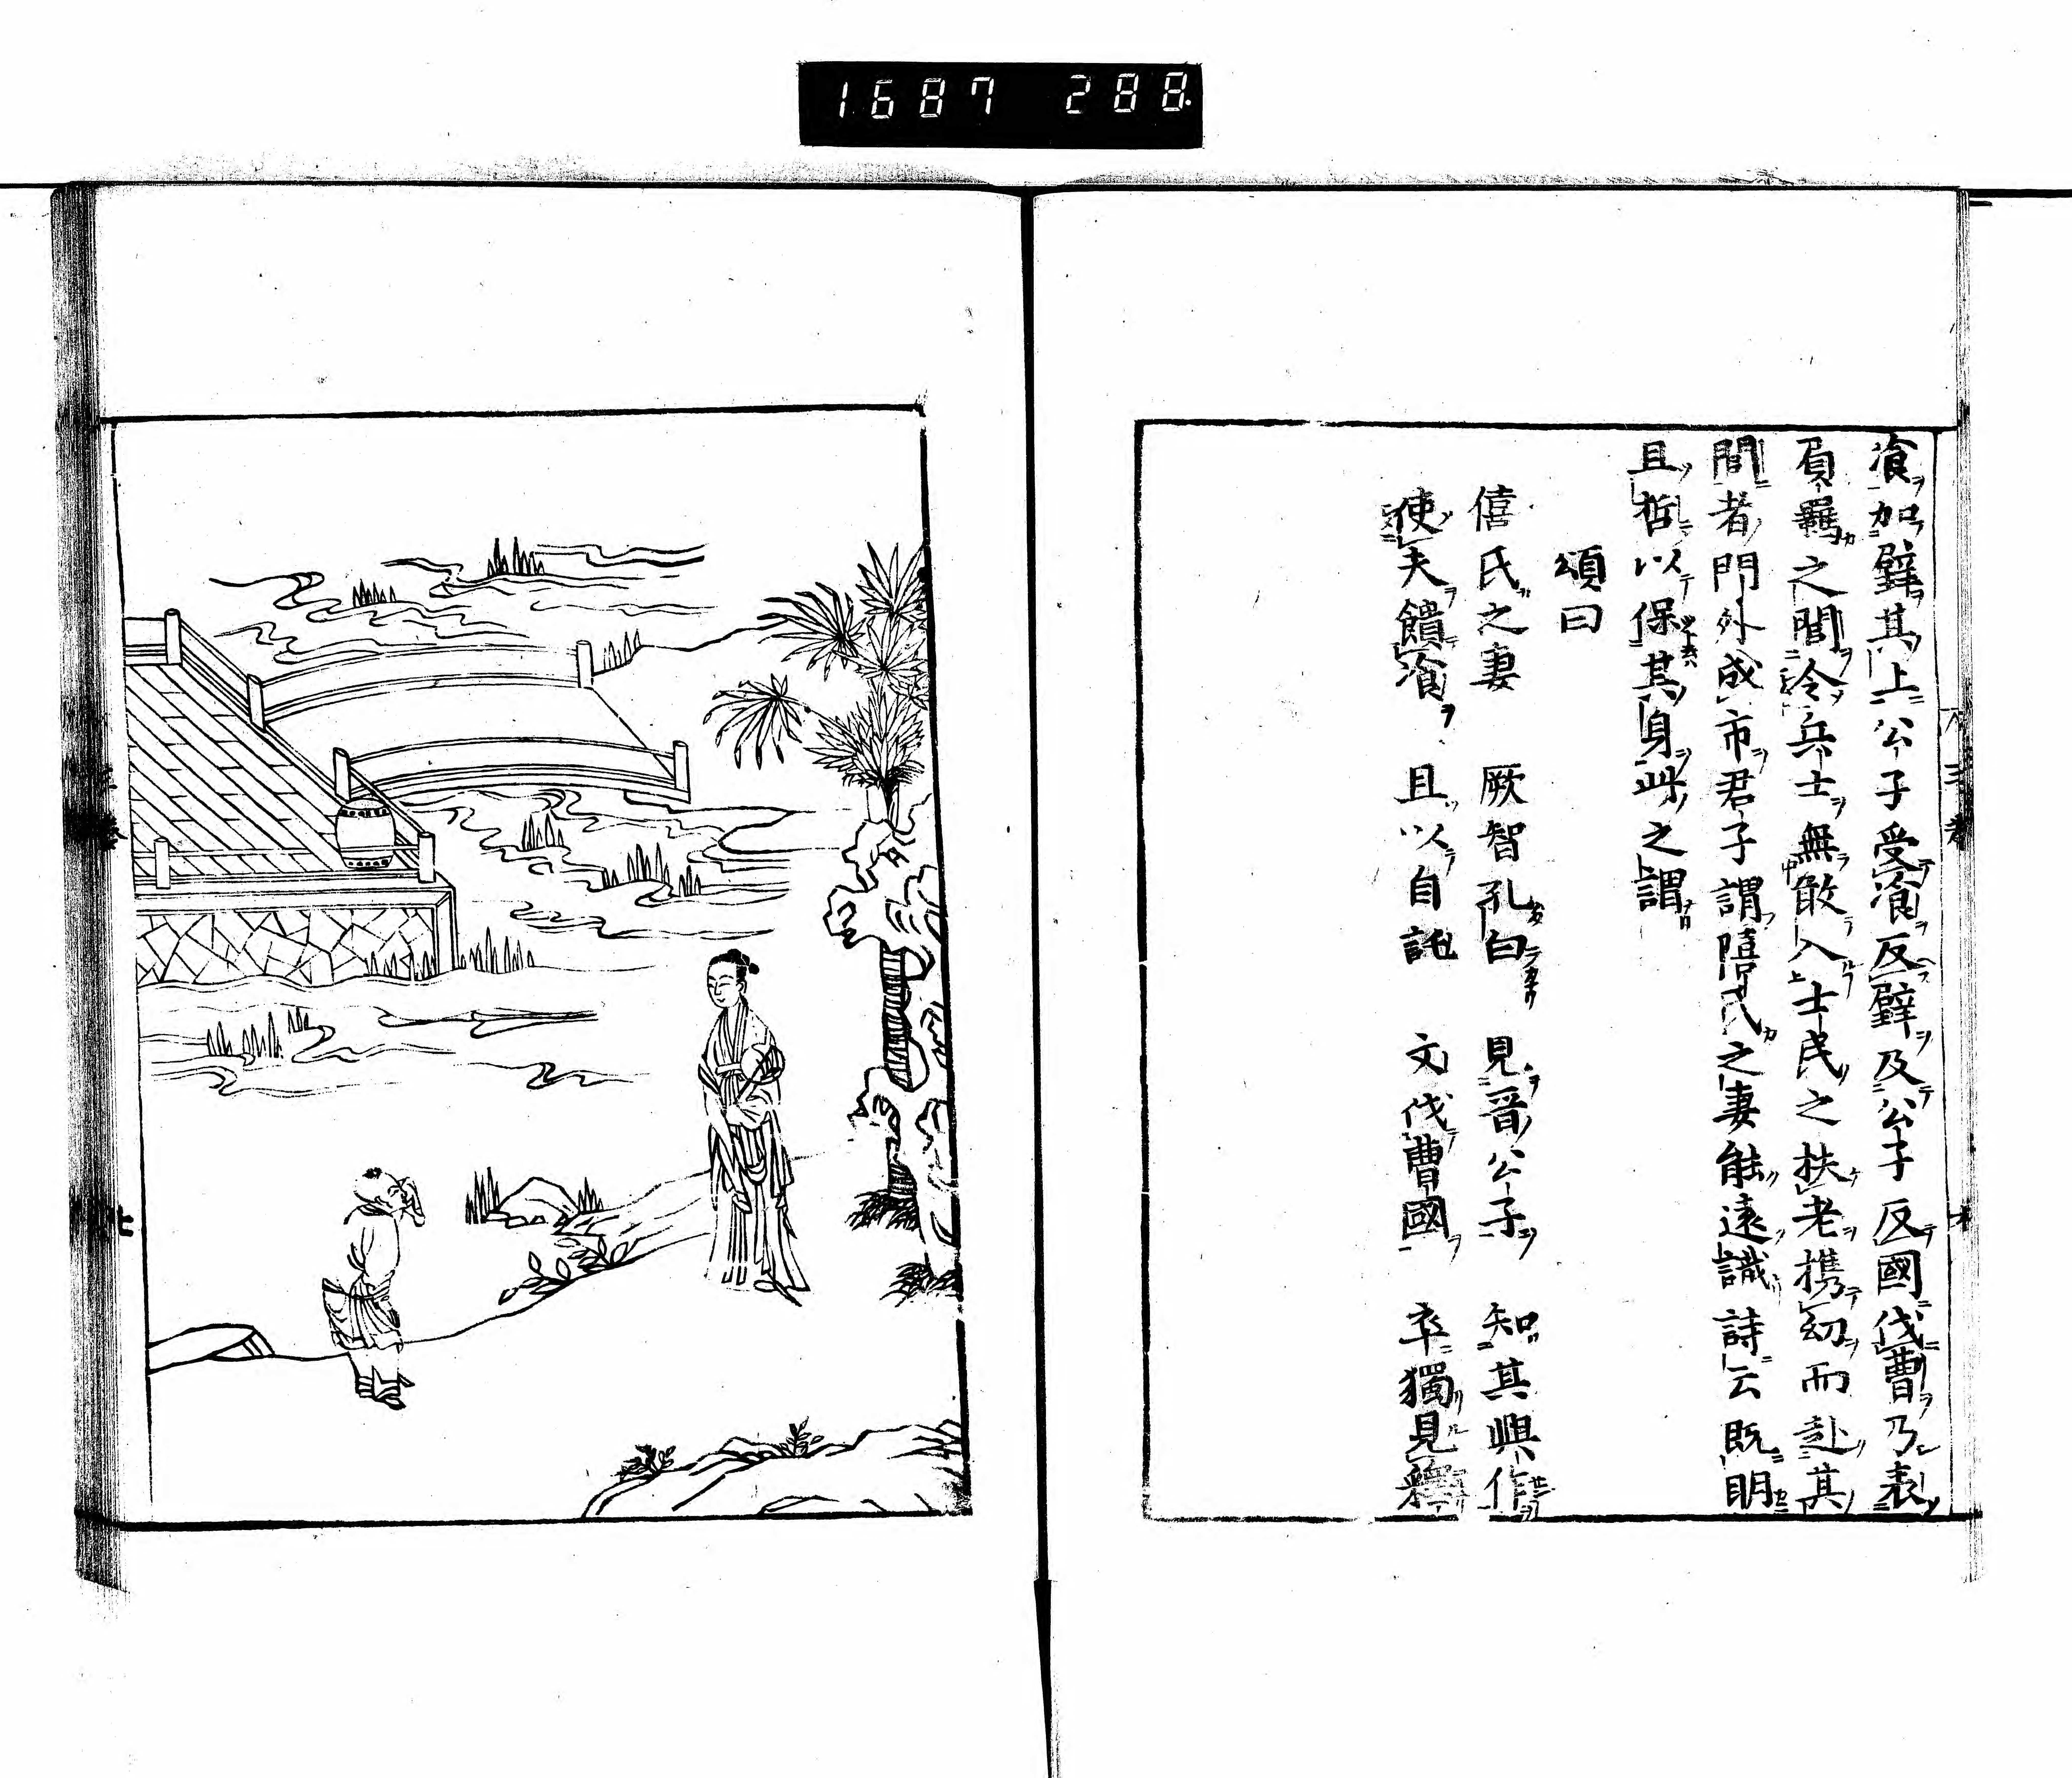 1687 288
飡加璧其上公子受飡反璧及公子反國伐曹乃表
負羈之閭令兵士無敢入士民之扶老携幼而赴其
閭者門外成市君子謂僖氏之妻能遠識詩云既明
且哲以保其身此之謂
頌曰
僖氏之妻 厥智孔白 見晉公子 知其興作
使夫饋飡 且以自託 文伐曹國 卒獨見釋